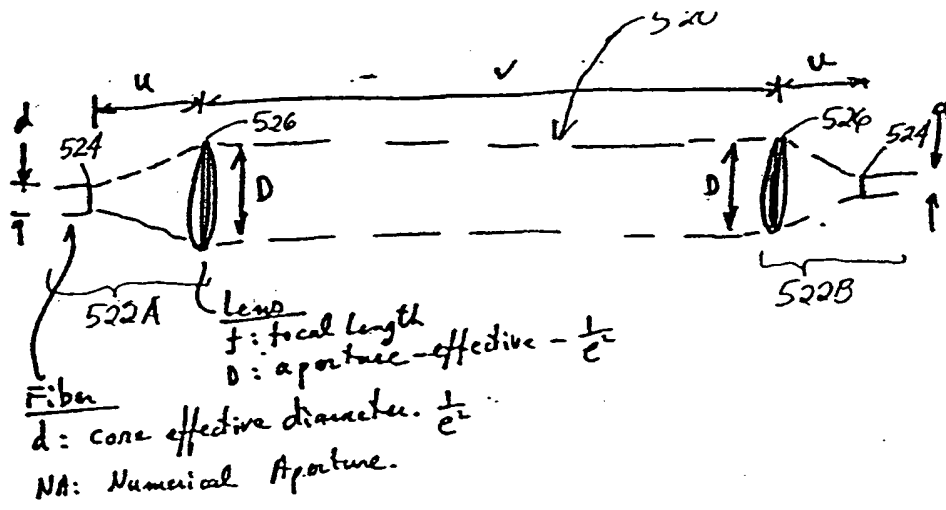 520
u v u
d 524 526 526 524 d
D D
522A 522B
Lens
f: focal length
D: aperture-effective - 1/e²
Fiber
d: core effective diameter. 1/e²
NA: Numerical Aperture.